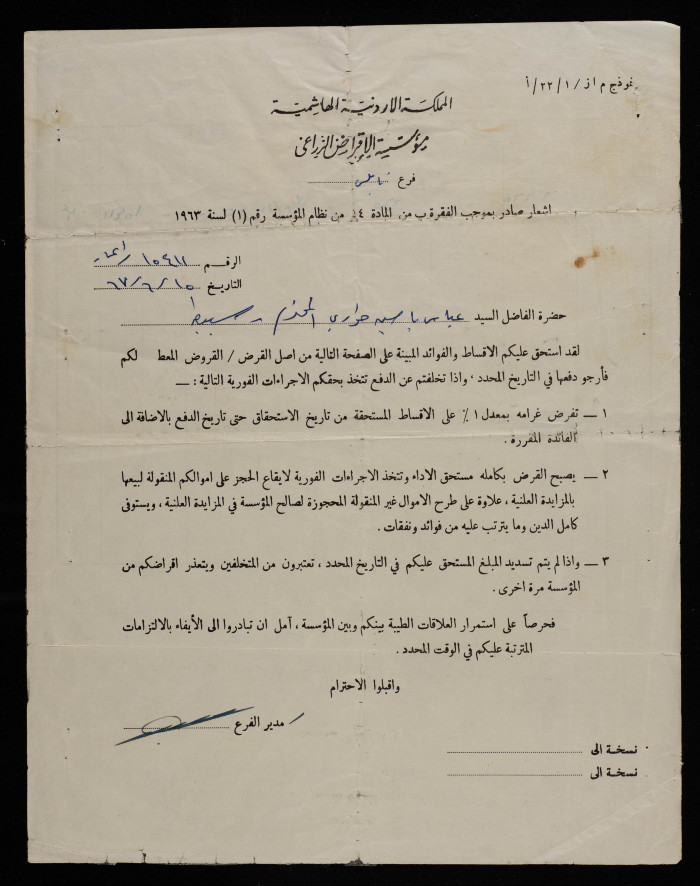 نموذج م از / ٢٢/١ / أ
المملكة الاردنية الهاشمية
مؤسسة الإقراض الزراعي
فرع نابلس
اشعار صادر بموجب الفقرة ب من المادة ٤ من نظام المؤسسة رقم (١) لسنة ١٩٦٣
الرقم
التاريخ ٦٧/٦/١٥
حضرة الفاضل السيد عباس ياسين حواري المحترم
لقد استحق عليكم الاقساط والفوائد المبينة على الصفحة التالية من اصل القرض / القروض المعط لكم
فأرجو دفعها في التاريخ المحدد ، واذا تخلفتم عن الدفع تتخذ بحقكم الاجراءات الفورية التالية : —
١ — تفرض غرامه بمعدل ١ ٪ على الاقساط المستحقة من تاريخ الاستحقاق حتى تاريخ الدفع بالاضافة الى
الفائدة المقررة .
٢ — يصبح القرض بكامله مستحق الاداء وتتخذ الاجراءات الفورية لايقاع الحجز على اموالكم المنقولة لبيعها
بالمزايدة العلنية ، علاوة على طرح الاموال غير المنقولة المحجوزة لصالح المؤسسة في المزايدة العلنية ، ويستوفى
كامل الدين وما يترتب عليه من فوائد ونفقات .
٣ — واذا لم يتم تسديد المبلغ المستحق عليكم في التاريخ المحدد ، تعتبرون من المتخلفين ويتعذر اقراضكم من
المؤسسة مرة اخرى .
فحرصاً على استمرار العلاقات الطيبة بينكم وبين المؤسسة ، آمل ان تبادروا الى الأيفاء بالالتزامات
المترتبة عليكم في الوقت المحدد .
واقبلوا الاحترام
مدير الفرع
نسخة الى
نسخة الى